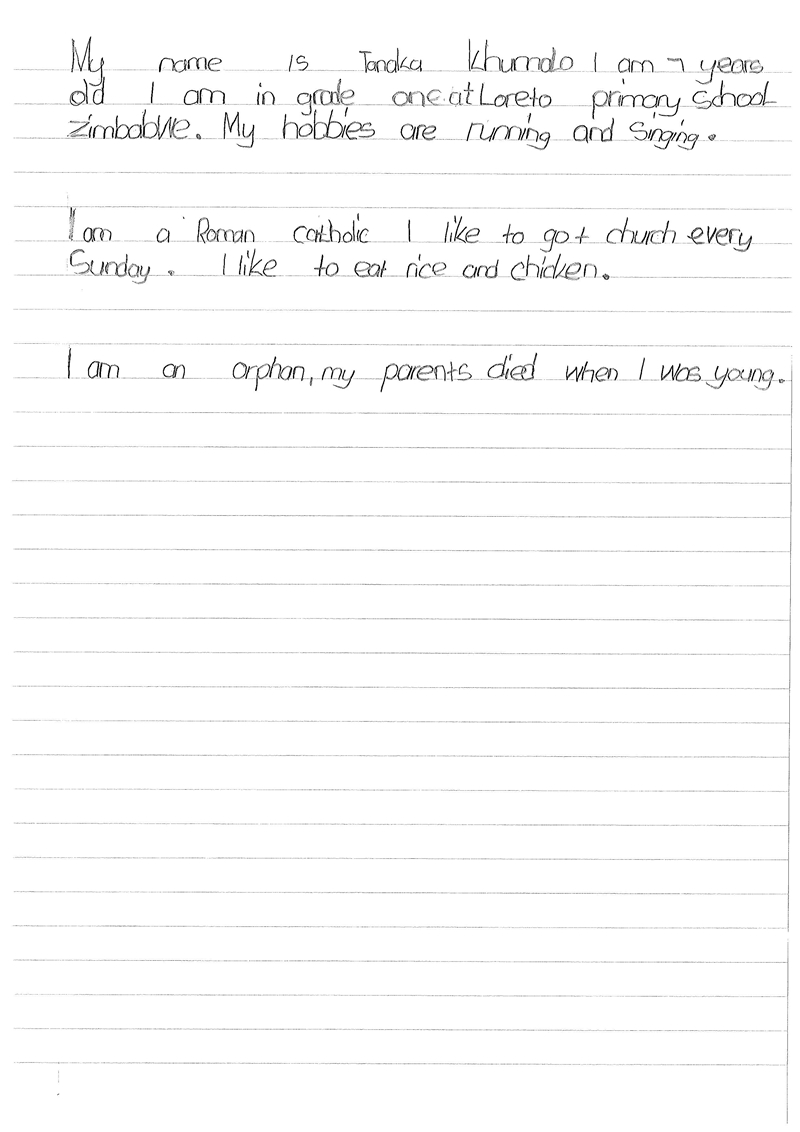 My name is Tanaka Khumalo I am 7 years
old I am in grade one at Loreto primary School
Zimbabwe. My hobbies are running and Singing.
I am a Roman catholic I like to go t church every
Sunday. I like to eat rice and chicken.
I am an orphan, my parents died when I was young.